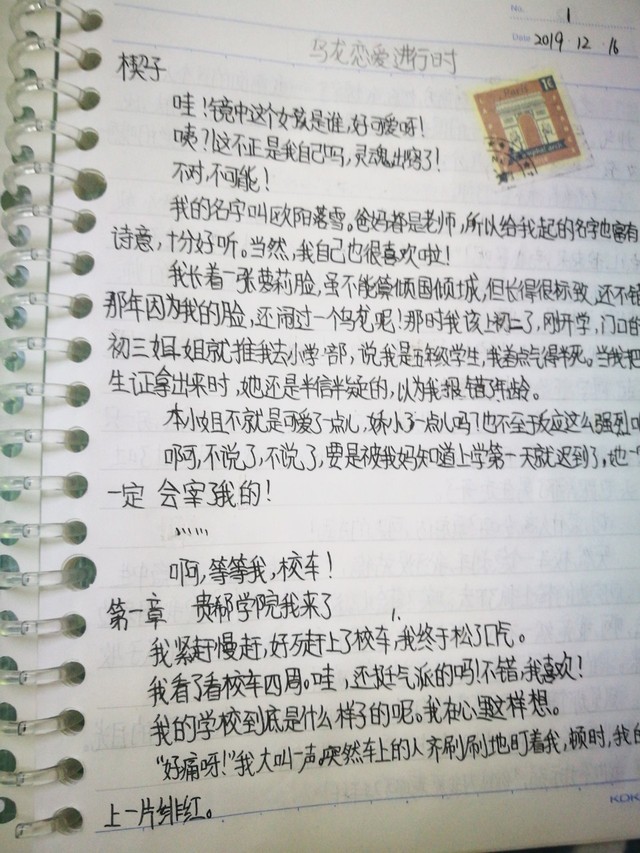 No. 1
Date 2019.12.16
乌龙恋爱进行时
Paris 10
楔子
哇!镜中这个女孩是谁,好可爱呀!
咦?!这不正是我自己吗,灵魂出窍了!
不对,不可能!
我的名字叫欧阳落雪。爸妈都是老师,所以给我起的名字也富有
诗意,十分好听。当然,我自己也很喜欢啦!
我长着一张萝莉脸,虽不能算倾国倾城,但长得很标致,还不错
那年因为我的脸,还闹过一个乌龙呢!那时我该上初二了,刚开学,门口的
初三姐姐就推我去小学部,说我是五年级学生,我差点气得半死。当我把
生证拿出来时,她还是半信半疑的,以为我报错了年龄。
本小姐不就是可爱了一点儿,娇小了一点儿吗?也不至于反应这么强烈
啊呵,不说了,不说了,要是被我妈知道上学第一天就迟到了,她一
一定 会宰了我的!
……
啊,等等我,校车!
第一章 贵族学院我来了 1.
我紧赶慢赶,好歹赶上了校车,我终于松了口气。
我看了看校车四周。哇,还挺气派的吗!不错,我喜欢!
我的学校到底是什么样子的呢。我在心里这样想。
“好痛呀!”我大叫一声。突然车上的人齐刷刷地盯着我,顿时,我的
上一片绯红。
KOK